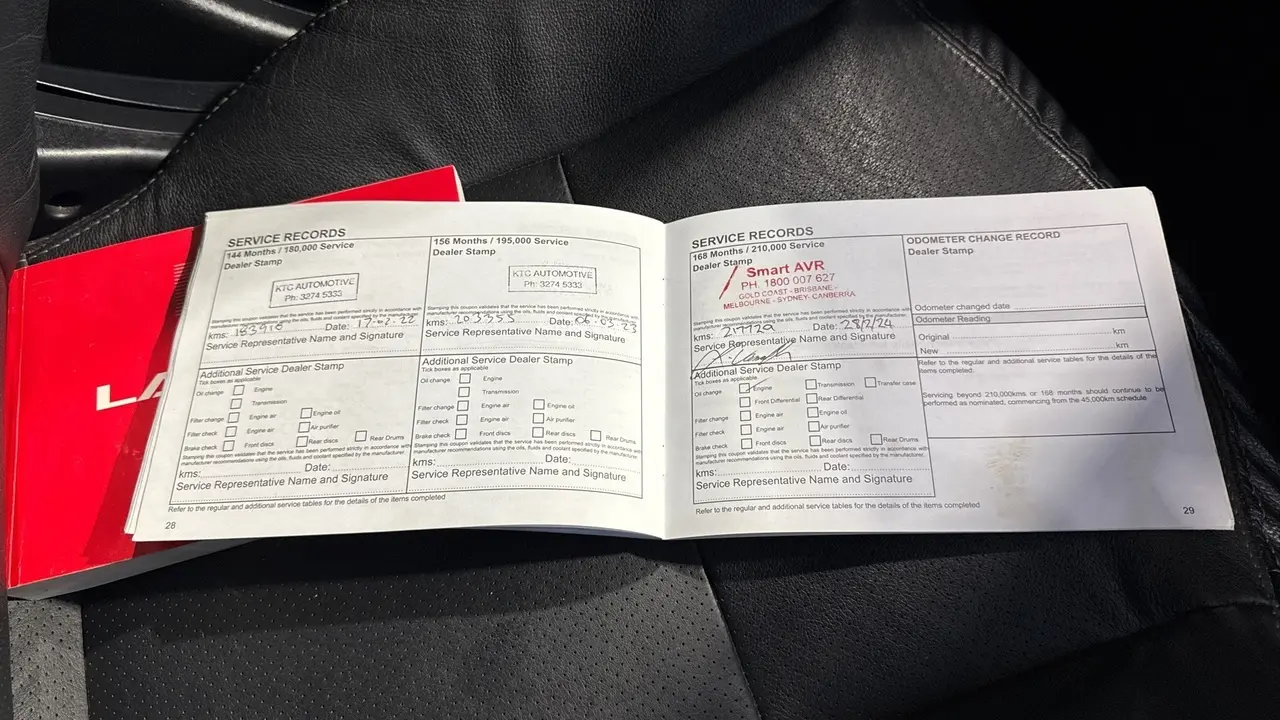 LA
SERVICE RECORDS
144 Months / 180,000 Service
Dealer Stamp
KTC AUTOMOTIVE
Ph: 3274 5333
Stamping this coupon validates that the service has been performed strictly in accordance with
manufacturer recommendations using the oils, fluids and coolant specified by the manufacturer.
kms: Date:
Service Representative Name and Signature
Additional Service Dealer Stamp
Tick boxes as applicable
Oil change Engine
Transmission
Filter change Engine air Engine oil
Filter check Engine air Air purifier
Brake check Front discs Rear discs Rear Drums
Stamping this coupon validates that the service has been performed strictly in accordance with
manufacturer recommendations using the oils, fluids and coolant specified by the manufacturer.
kms: Date:
Service Representative Name and Signature
Refer to the regular and additional service tables for the details of the items completed
28
156 Months / 195,000 Service
Dealer Stamp
KTC AUTOMOTIVE
Ph: 3274 5333
Stamping this coupon validates that the service has been performed strictly in accordance with
manufacturer recommendations using the oils, fluids and coolant specified by the manufacturer.
kms: 203955 Date: 06-03-23
Service Representative Name and Signature
Additional Service Dealer Stamp
Tick boxes as applicable
Oil change Engine
Transmission
Filter change Engine air Engine oil
Filter check Engine air Air purifier
Brake check Front discs Rear discs Rear Drums
Stamping this coupon validates that the service has been performed strictly in accordance with
manufacturer recommendations using the oils, fluids and coolant specified by the manufacturer.
kms: Date:
Service Representative Name and Signature
SERVICE RECORDS
168 Months / 210,000 Service
Dealer Stamp
Smart AVR
PH. 1800 007 627
GOLD COAST - BRISBANE -
MELBOURNE - SYDNEY- CANBERRA
Stamping this coupon validates that the service has been performed strictly in accordance with
manufacturer recommendations using the oils, fluids and coolant specified by the manufacturer.
kms: 217720 Date: 28/2/24
Service Representative Name and Signature
Additional Service Dealer Stamp
Tick boxes as applicable
Oil change Engine Transmission Transfer case
Front Differential Rear Differential
Filter change Engine air Engine oil
Filter check Engine air Air purifier
Brake check Front discs Rear discs Rear Drums
Stamping this coupon validates that the service has been performed strictly in accordance with
manufacturer recommendations using the oils, fluids and coolant specified by the manufacturer.
kms: Date:
Service Representative Name and Signature
Refer to the regular and additional service tables for the details of the items completed
ODOMETER CHANGE RECORD
Dealer Stamp
Odometer changed date
Odometer Reading
Original km
New km
Refer to the regular and additional service tables for the details of the
items completed.
Servicing beyond 210,000kms or 168 months should continue to be
performed as nominated, commencing from the 45,000km schedule
29